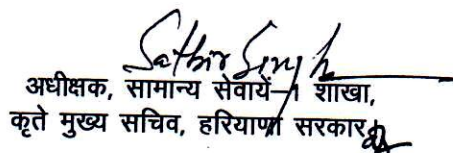 Satbir Singh
अधीक्षक, सामान्य सेवायें-1 शाखा,
कृते मुख्य सचिव, हरियाणा सरकार